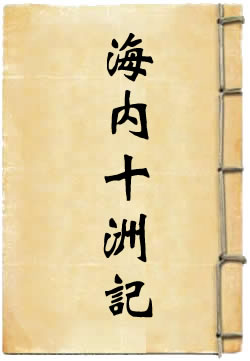 海内十洲記